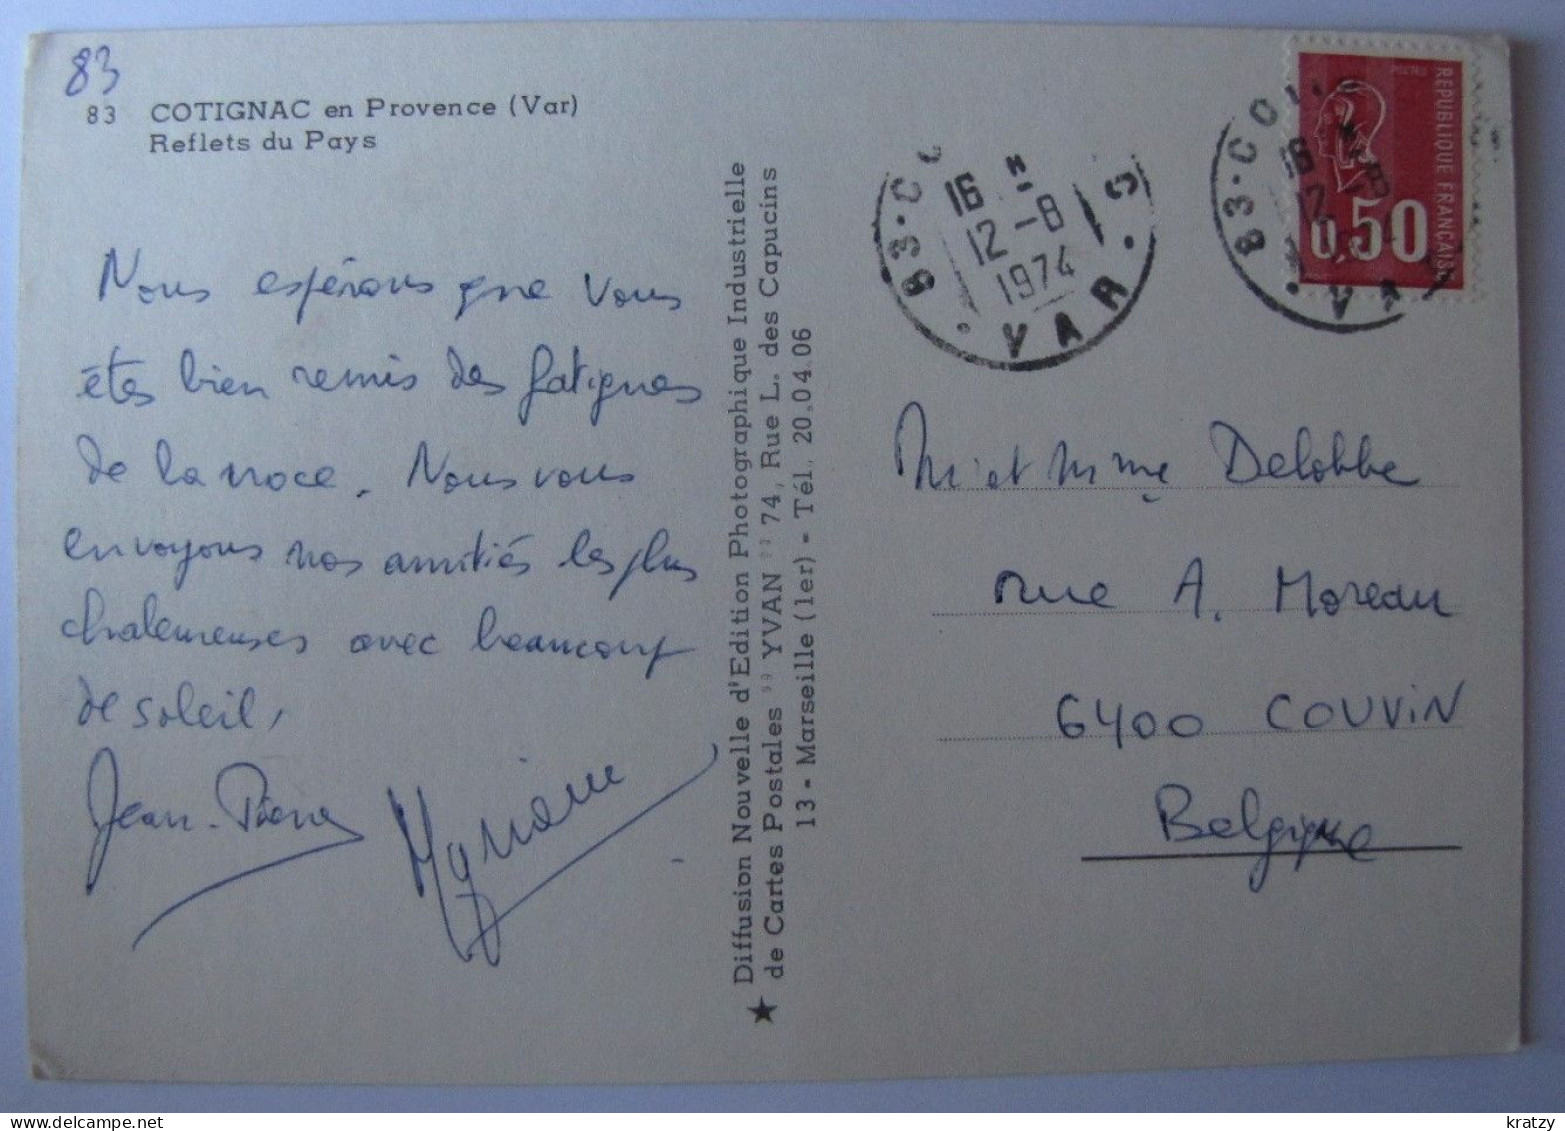 83
83 COTIGNAC en Provence (Var)
Reflets du Pays
Nous espérons que vous
êtes bien remis des fatigues
de la noce. Nous vous
envoyons nos amitiés les plus
chaleureuses avec beaucoup
de soleil,
Jean-Pierre
Myriam
Diffusion Nouvelle d'Edition Photographique Industrielle
de Cartes Postales " YVAN " 74, Rue L. des Capucins
13 - Marseille (1er) - Tél. 20.04.06
83
16 H
12 -8
1974
VAR
REPUBLIQUE FRANCAISE
POSTES
0,50
83
16 H
12 -8
VAR
Mr et Mme Delobbe
rue A. Moreau
6400 COUVIN
Belgique
kratzy